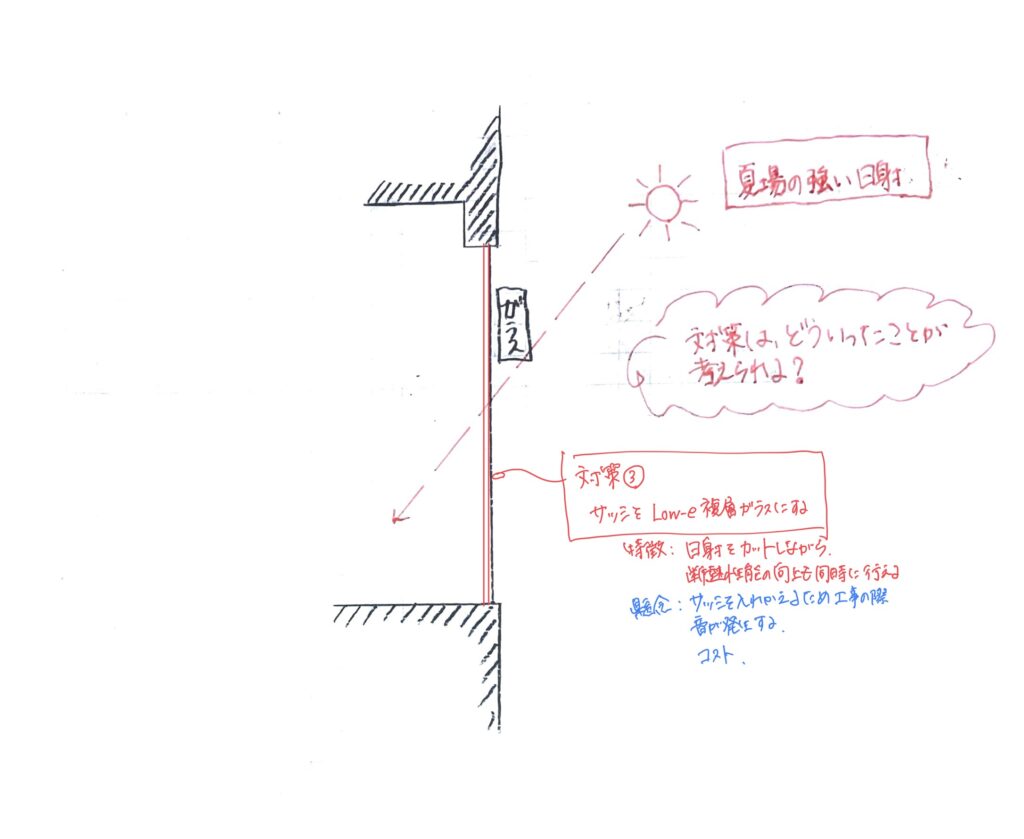 夏場の強い日射.
ガラス
対策は、どういったことが
考えられる?
対策③
サッシを Low-e 複層ガラスにする
特徴: 日射をカットしながら、
断熱性能の向上も同時に行える
懸念: サッシを入れかえるため工事の際
音が発生する.
コスト.